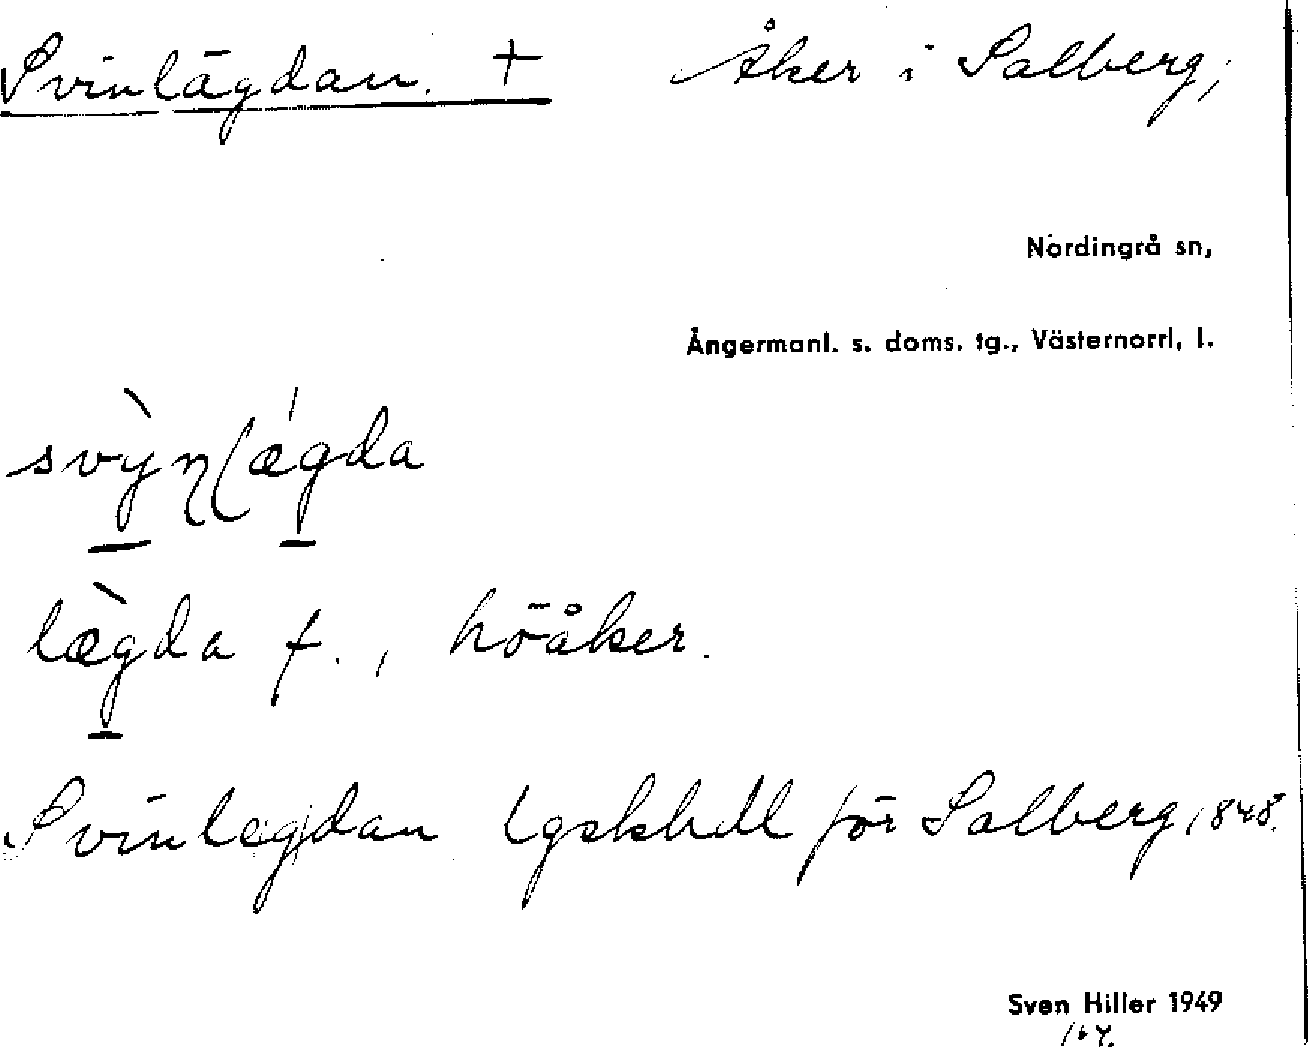 Svinlägdan. + Åker i Salberg,
Nordingrå sn,
Ångermanl. s. doms. tg., Västernorrl. l.
lægda f., höåker.
Svinlegdan Lgskhdl för Salberg 1848.
Sven Hiller 1949